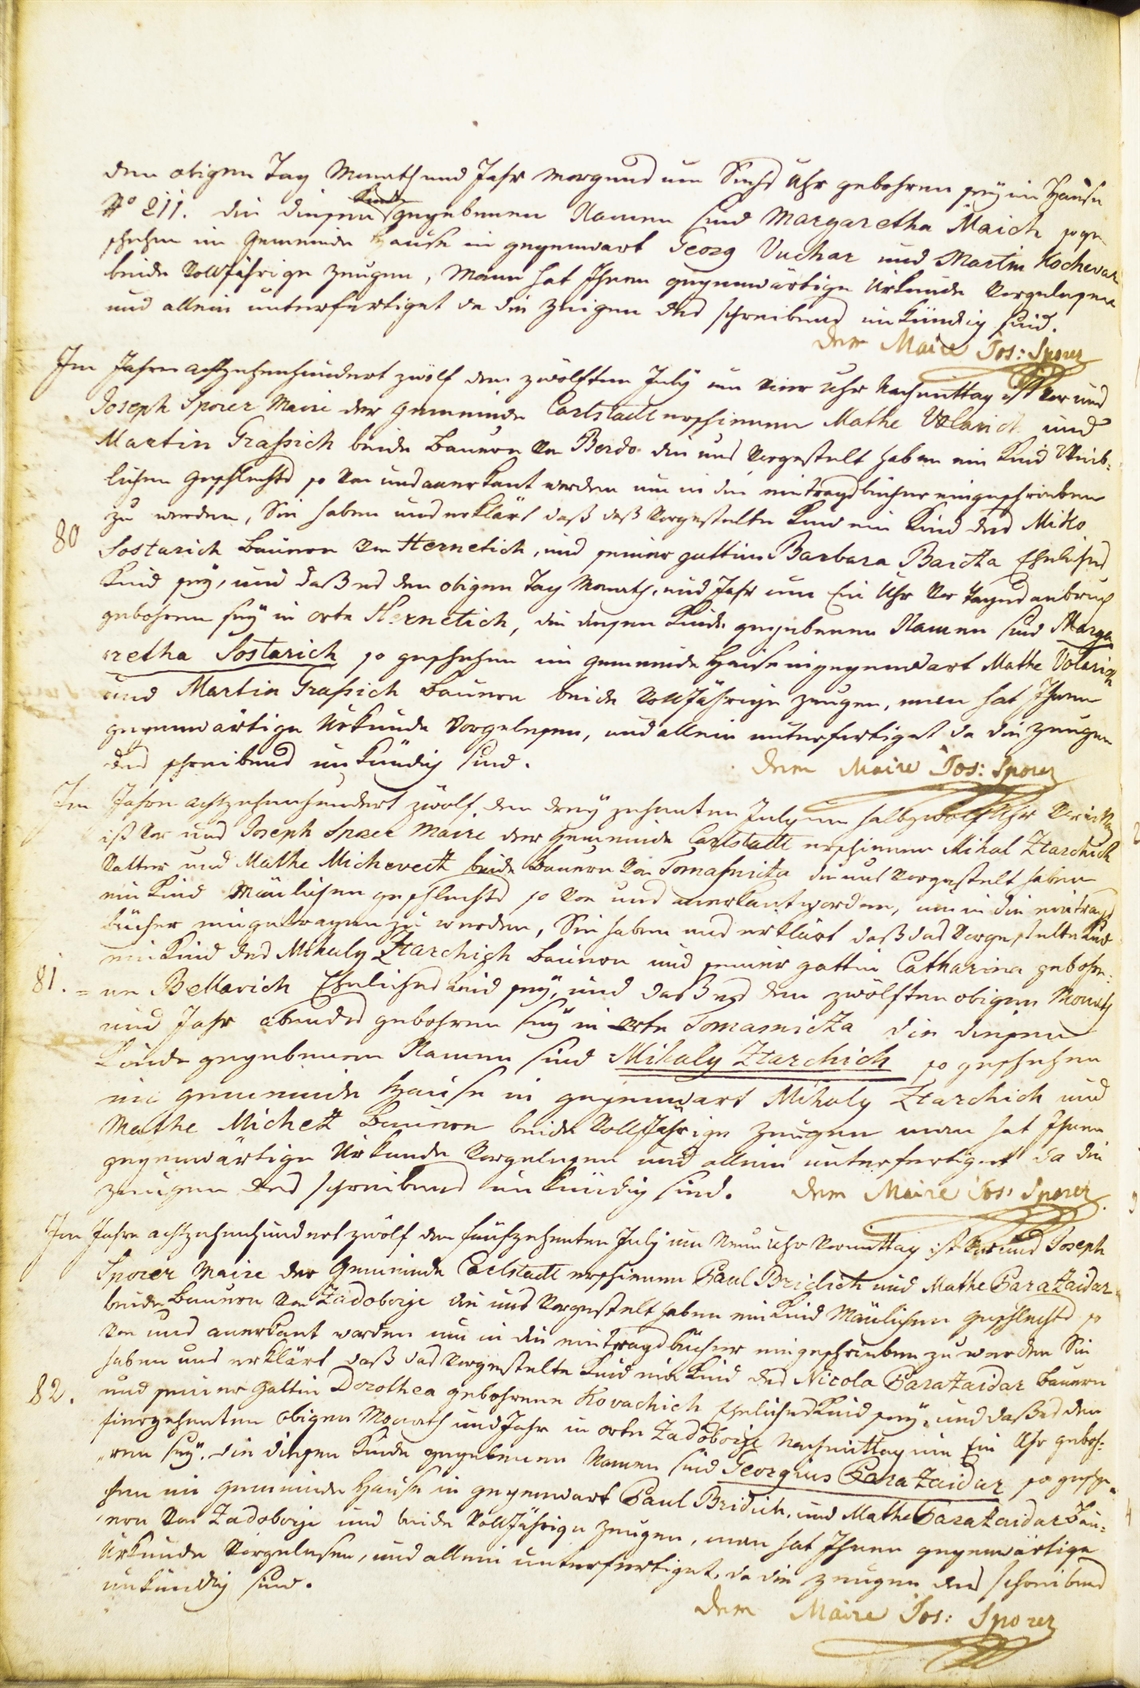 den obigen Tag Monath und Jahr morgends um Sechs Uhr gebohren sey im Hause
N° 211. die diesem Kinde gegebenen Namen sind Margaretha Maich so ge-
schehen im Gemeinde Hause in gegenwart Georg Vuchar und Martin Kochevar
beide Volljährige Zeugen, Mann hat Ihnen gegenwärtige Urkunde Vorgelesen
und allein unterfertiget da die Zeugen des schreibens unkündig sind.
Der Maire Jos: Sporer
Im Jahre achtzehenhundert zwölf den zwölften July um vier Uhr Nachmittag ist vor uns
Joseph Sporer Maire der Gemeinde Carlstadt erschienen Mathe und
Martin Grassich beide Bauern von Berdo die uns Vorgestelt haben ein Kind Weib-
lichen Geschlechts so von uns anerkant worden um in die eintragsbücher eingeschrieben
80
zu werden, Sie haben uns erklärt daß daß Vorgestelte Kind ein Kind des Misko
Sostarich Bauern von Hernetich, und seiner gattin Barbara Ehelich
Kind sey, und daß es den obigen Tag Monath, und Jahr um Ein Uhr Vor Tages anbruch
gebohren sey in orte Hernetich, die diesen Kinde gegebenen Namen sind Marga
retha Sostarich so geschehen im gemeinde Hause in gegenwart Mathe
und Martin Grassich Bauern beide Volljährige Zeugen, man hat Ihnen
gegenwärtige Urkunde Vorgelesen, und allein unterfertiget da die Zeugen
des schreibens unkündig sind.
Der Maire Jos: Sporer
Im Jahre achtzehenhundert zwölf, den dreyzehenten July um halb zwölf Uhr
ist vor uns Joseph Sporer Maire der Gemeinde Carlstadt erschienen Mihal Ztarchich
Vatter und Mathe beide Bauern von Tomasnicza die uns Vorgestelt haben
ein Kind Mänlichen geschlechts so von uns anerkant worden, um in die eintrags
bücher eingetragen zu werden, Sie haben uns erklärt daß das Vorgestelte Kind
81.
ein Kind des Mihaly Ztarchich Bauern und seiner gattin Catharina gebohre-
= ne Bellavich Eheliches Kind sey, und daß es den zwölften obigen Monath
und Jahr abends gebohren sey in orte Tomasnicza die diesem
Kinde gegebenen Namen sind Mihaly Ztarchich so geschehen
im gemeinde Hause in gegenwart Mihaly Ztarchich und
Mathe Bauern beide Volljährige Zeugen man hat Ihnen
gegenwärtige Urkunde Vorgelesen und allein unterfertiget da die
Zeugen des schreibens unkündig sind.
Der Maire Jos: Sporer
Im Jahre achtzehenhundert zwölf den fünfzehenten July um Neun Uhr Vormittag ist Vor uns Joseph
Sporer Maire der Gemeinde Carlstadt erschienen Paul Bridich und Mathe Parazaidar
beide Bauern von Zadoborje die uns Vorgestelt haben ein Kind Mänlichen Geschlechts so
von uns anerkant worden um in die eintragsbücher eingeschrieben zu werden Sie
haben uns erklärt daß das Vorgestelte Kind ein Kind des Nicola Parazaidar Bauern
82.
und seiner Gattin Dorothea gebohrene Kovachich Eheliches Kind sey, und daß es den
vierzehenten obigen Monath und Jahr in orte Zadoborje Nachmittag um Ein Uhr geboh-
ren sey. die diesen Kinde gegebenen Namen sind Georgius Parazaidar so gesche-
hen im gemeinde Hause in gegenwart Paul Bridich, und Mathe Parazaidar Bau-
ern von Zadoborje und beide Volljährige Zeugen, man hat Ihnen gegenwärtige
Urkunde Vorgelesen, und allein unterfertiget, da die Zeugen des schreibens
unkündig sind.
Der Maire Jos: Sporer